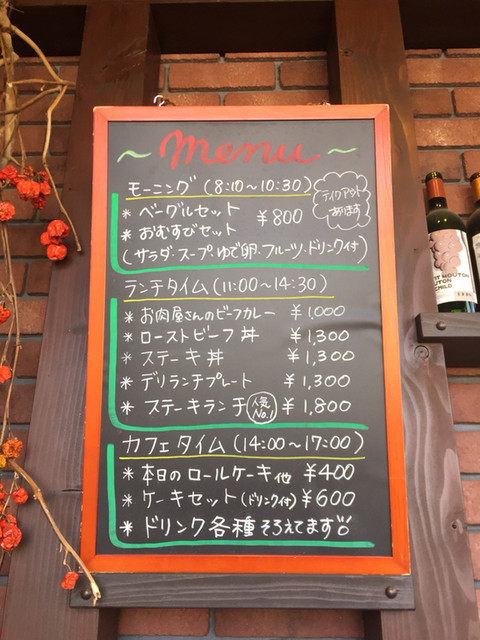 ~ menu ~
モーニング (8:10～10:30)
テイクアウト
あります
* ベーグルセット ¥800
* おむすびセット
(サラダ・スープ・ゆで卵・フルーツ・ドリンク付)
ランチタイム (11:00～14:30)
* お肉屋さんのビーフカレー ¥1,000
* ローストビーフ丼 ¥1,300
* ステーキ丼 ¥1,300
* デリランチプレート ¥1,300
* ステーキランチ 人気No.1 ¥1,800
カフェタイム (14:00～17:00)
* 本日のロールケーキ他 ¥400
* ケーキセット(ドリンク付) ¥600
* ドリンク各種そろえてます
MOUTON